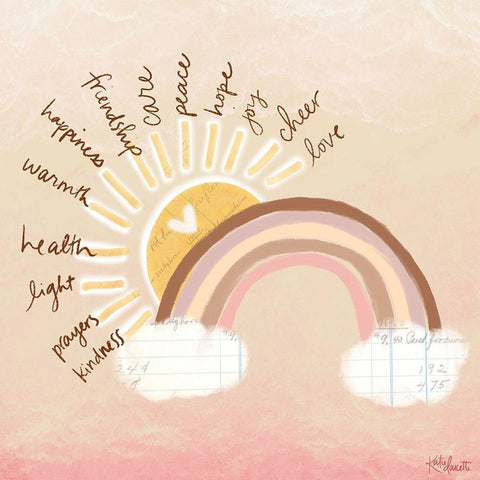 kindness
prayers
light
health
warmth
happiness
friendship
care
peace
hope
joy
cheer
love
244
192
475